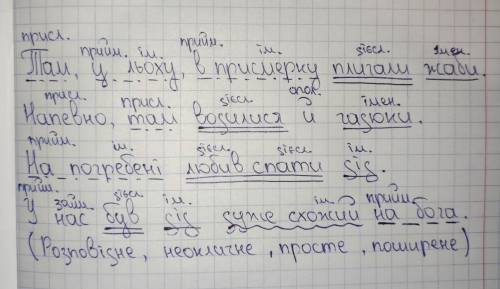 присл.
прийм. ім. прийм. ім. дієсл. імен.
Там, у льоху, в присмерку плигали жаби.
присл. присл. дієсл. спол. імен.
Напевно, там водилися й гадюки.
прийм. ім. дієсл. дієсл. ім.
На погребені любив спати дід.
прийм. займ. дієсл. ім. ім. прийм.
У нас був дід дуже схожий на бога.
(Розповідне, неокличне, просте, поширене)